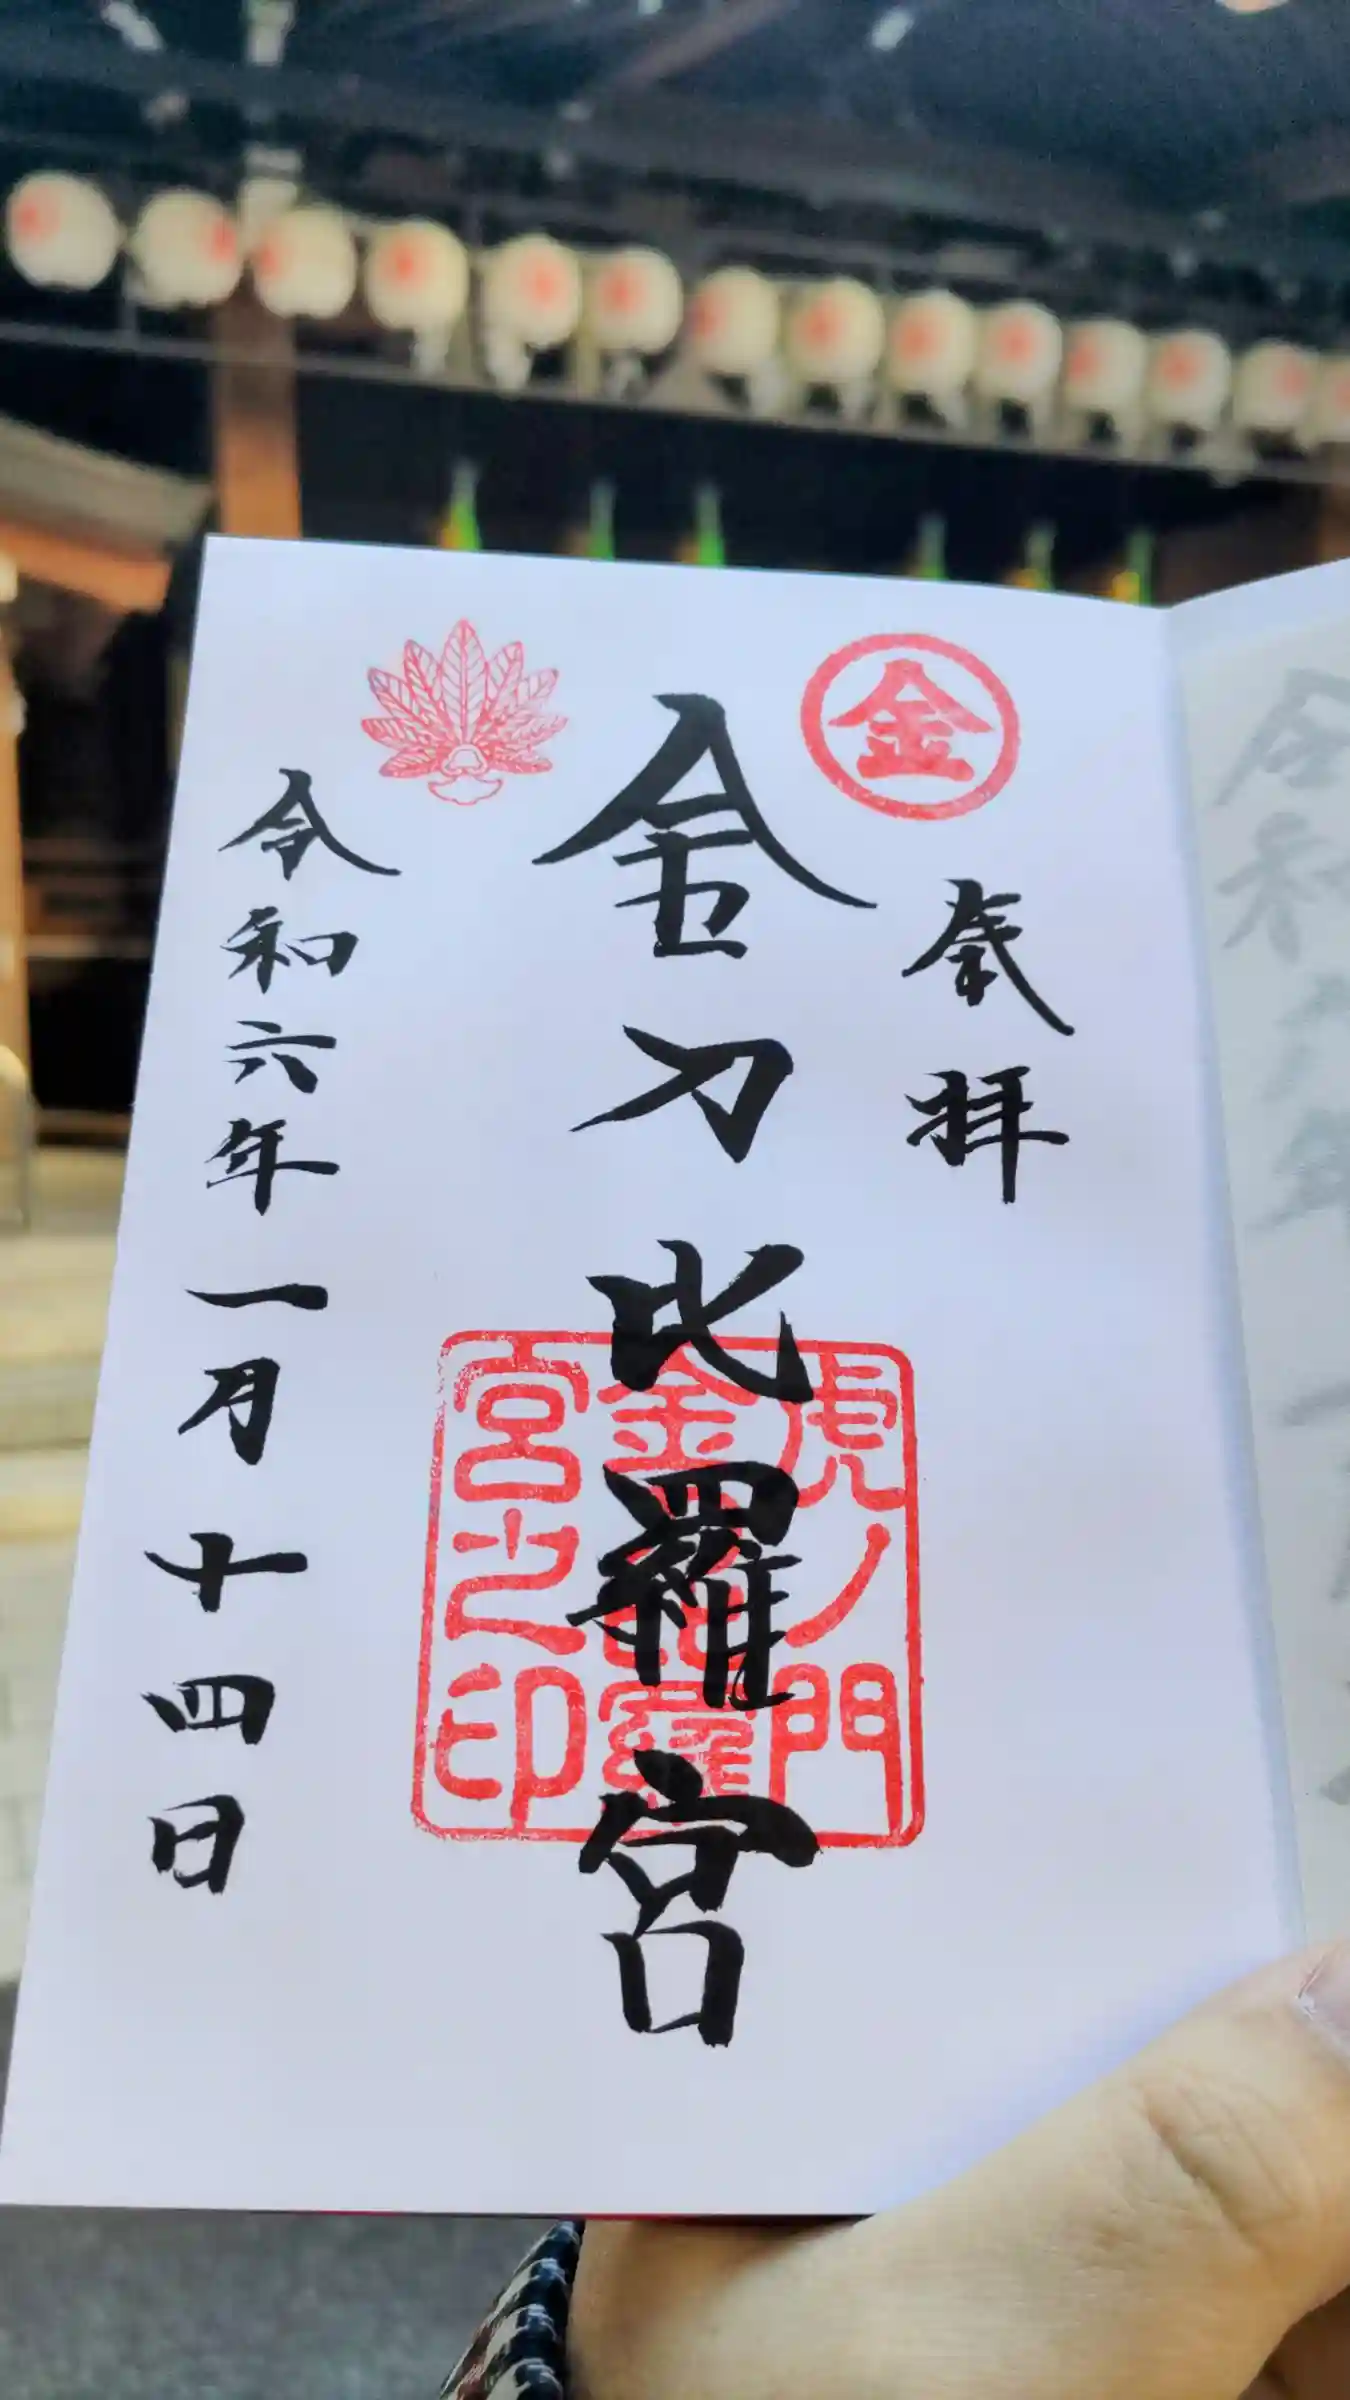 金
奉拝
金刀比羅宮
虎ノ門
金
羅
宮之印
令和六年一月十四日